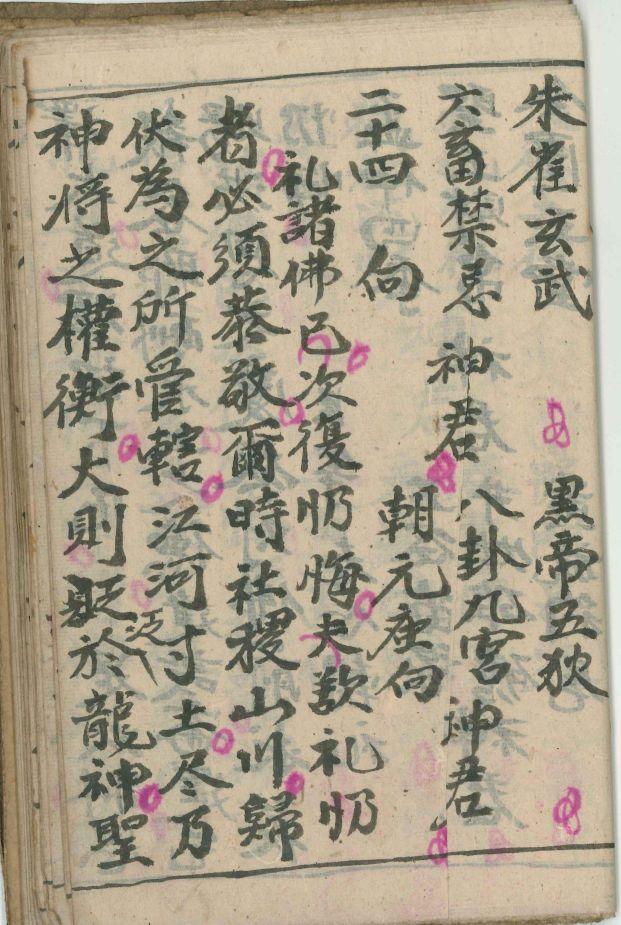 朱雀玄武 黑帝五狄
六畜禁忌神君 八卦九宮神君
二十四向 朝元座向
礼諸佛已次復忏悔夫欲礼忏
者必須恭敬爾時社稷山川歸
伏為之所管轄江河寸土尽乃
神将之權衡大則 於龍神聖